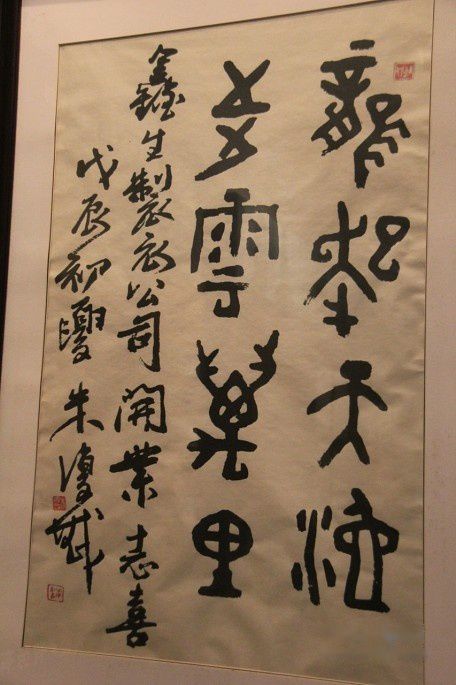 龍起天
雲萬里
鑫生製衣公司開業志喜
戊辰初夏 朱復戡